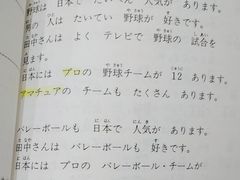 は 日本で たいへん 人気が あります。
の 人は たいてい 野球が 好きです。
田中さんは よく テレビで 野球の 試合を
見ます。
日本には プロの 野球チームが 12 あります。
アマチュアの チームも たくさん あります。
バレーボールも 日本で 人気が あります。
田中さんは バレーボールも 好きです。
日本には プロの バレーボール・チームが